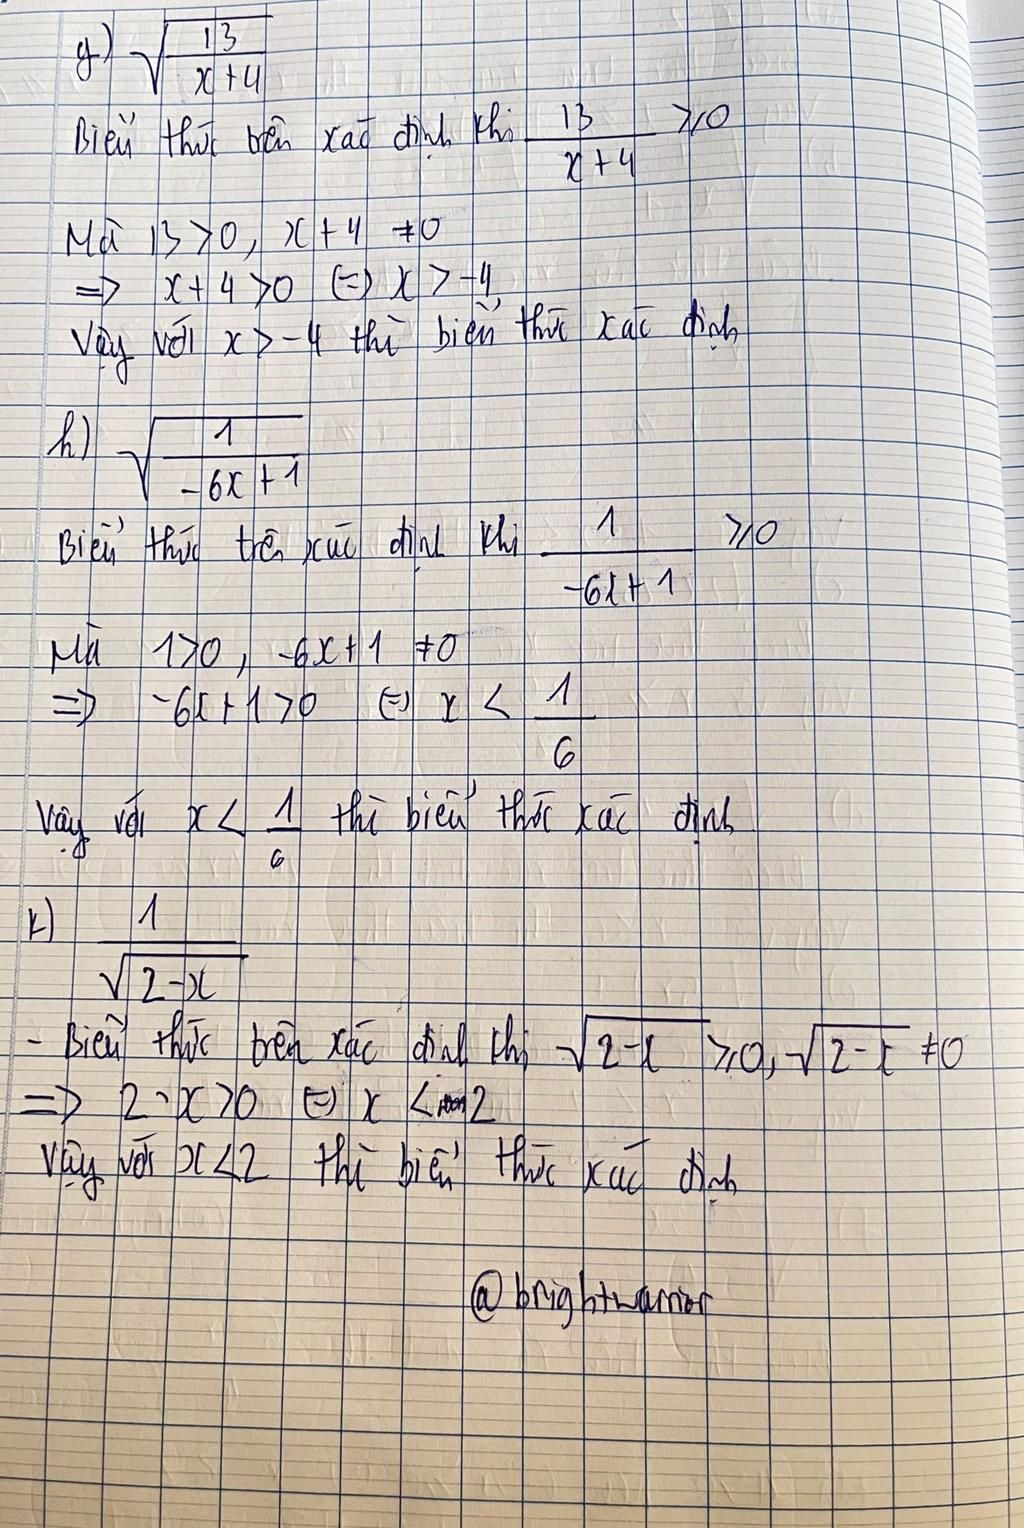 g) √(13/(x+4))
Biểu thức trên xác định khi 13/(x+4) ⩾0
Mà 13>0, x+4 ≠0
=> x+4>0 (=) x>-4
Vậy với x>-4 thì biểu thức xác định
h) √(1/(-6x+1))
Biểu thức trên xác định khi 1/(-6x+1) ⩾0
Mà 1>0, -6x+1 ≠0
=> -6x+1>0 (=) x < 1/6
Vậy với x< 1/6 thì biểu thức xác định
k) 1/√(2-x)
- Biểu thức trên xác định khi √(2-x) ⩾0, √(2-x) ≠0
=> 2-x>0 (=) x < 2
Vậy với x<2 thì biểu thức xác định
@brightwarrior